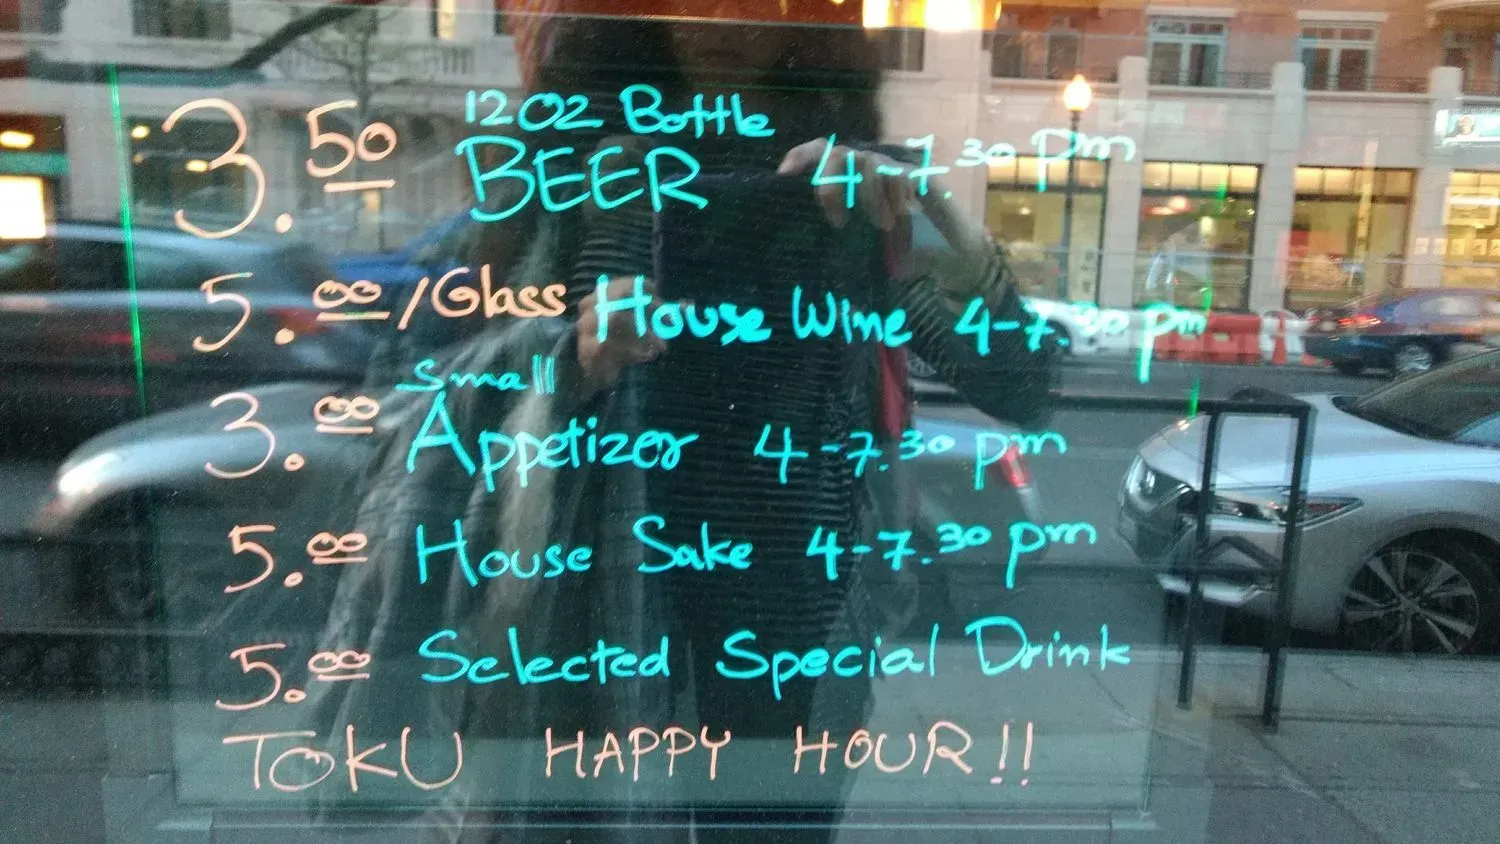 3.50 12OZ Bottle BEER 4-7.30 pm
5.00/Glass House Wine 4-7.30 pm
3.00 Small Appetizer 4-7.30 pm
5.00 House Sake 4-7.30 pm
5.00 Selected Special Drink
TOKU HAPPY HOUR!!